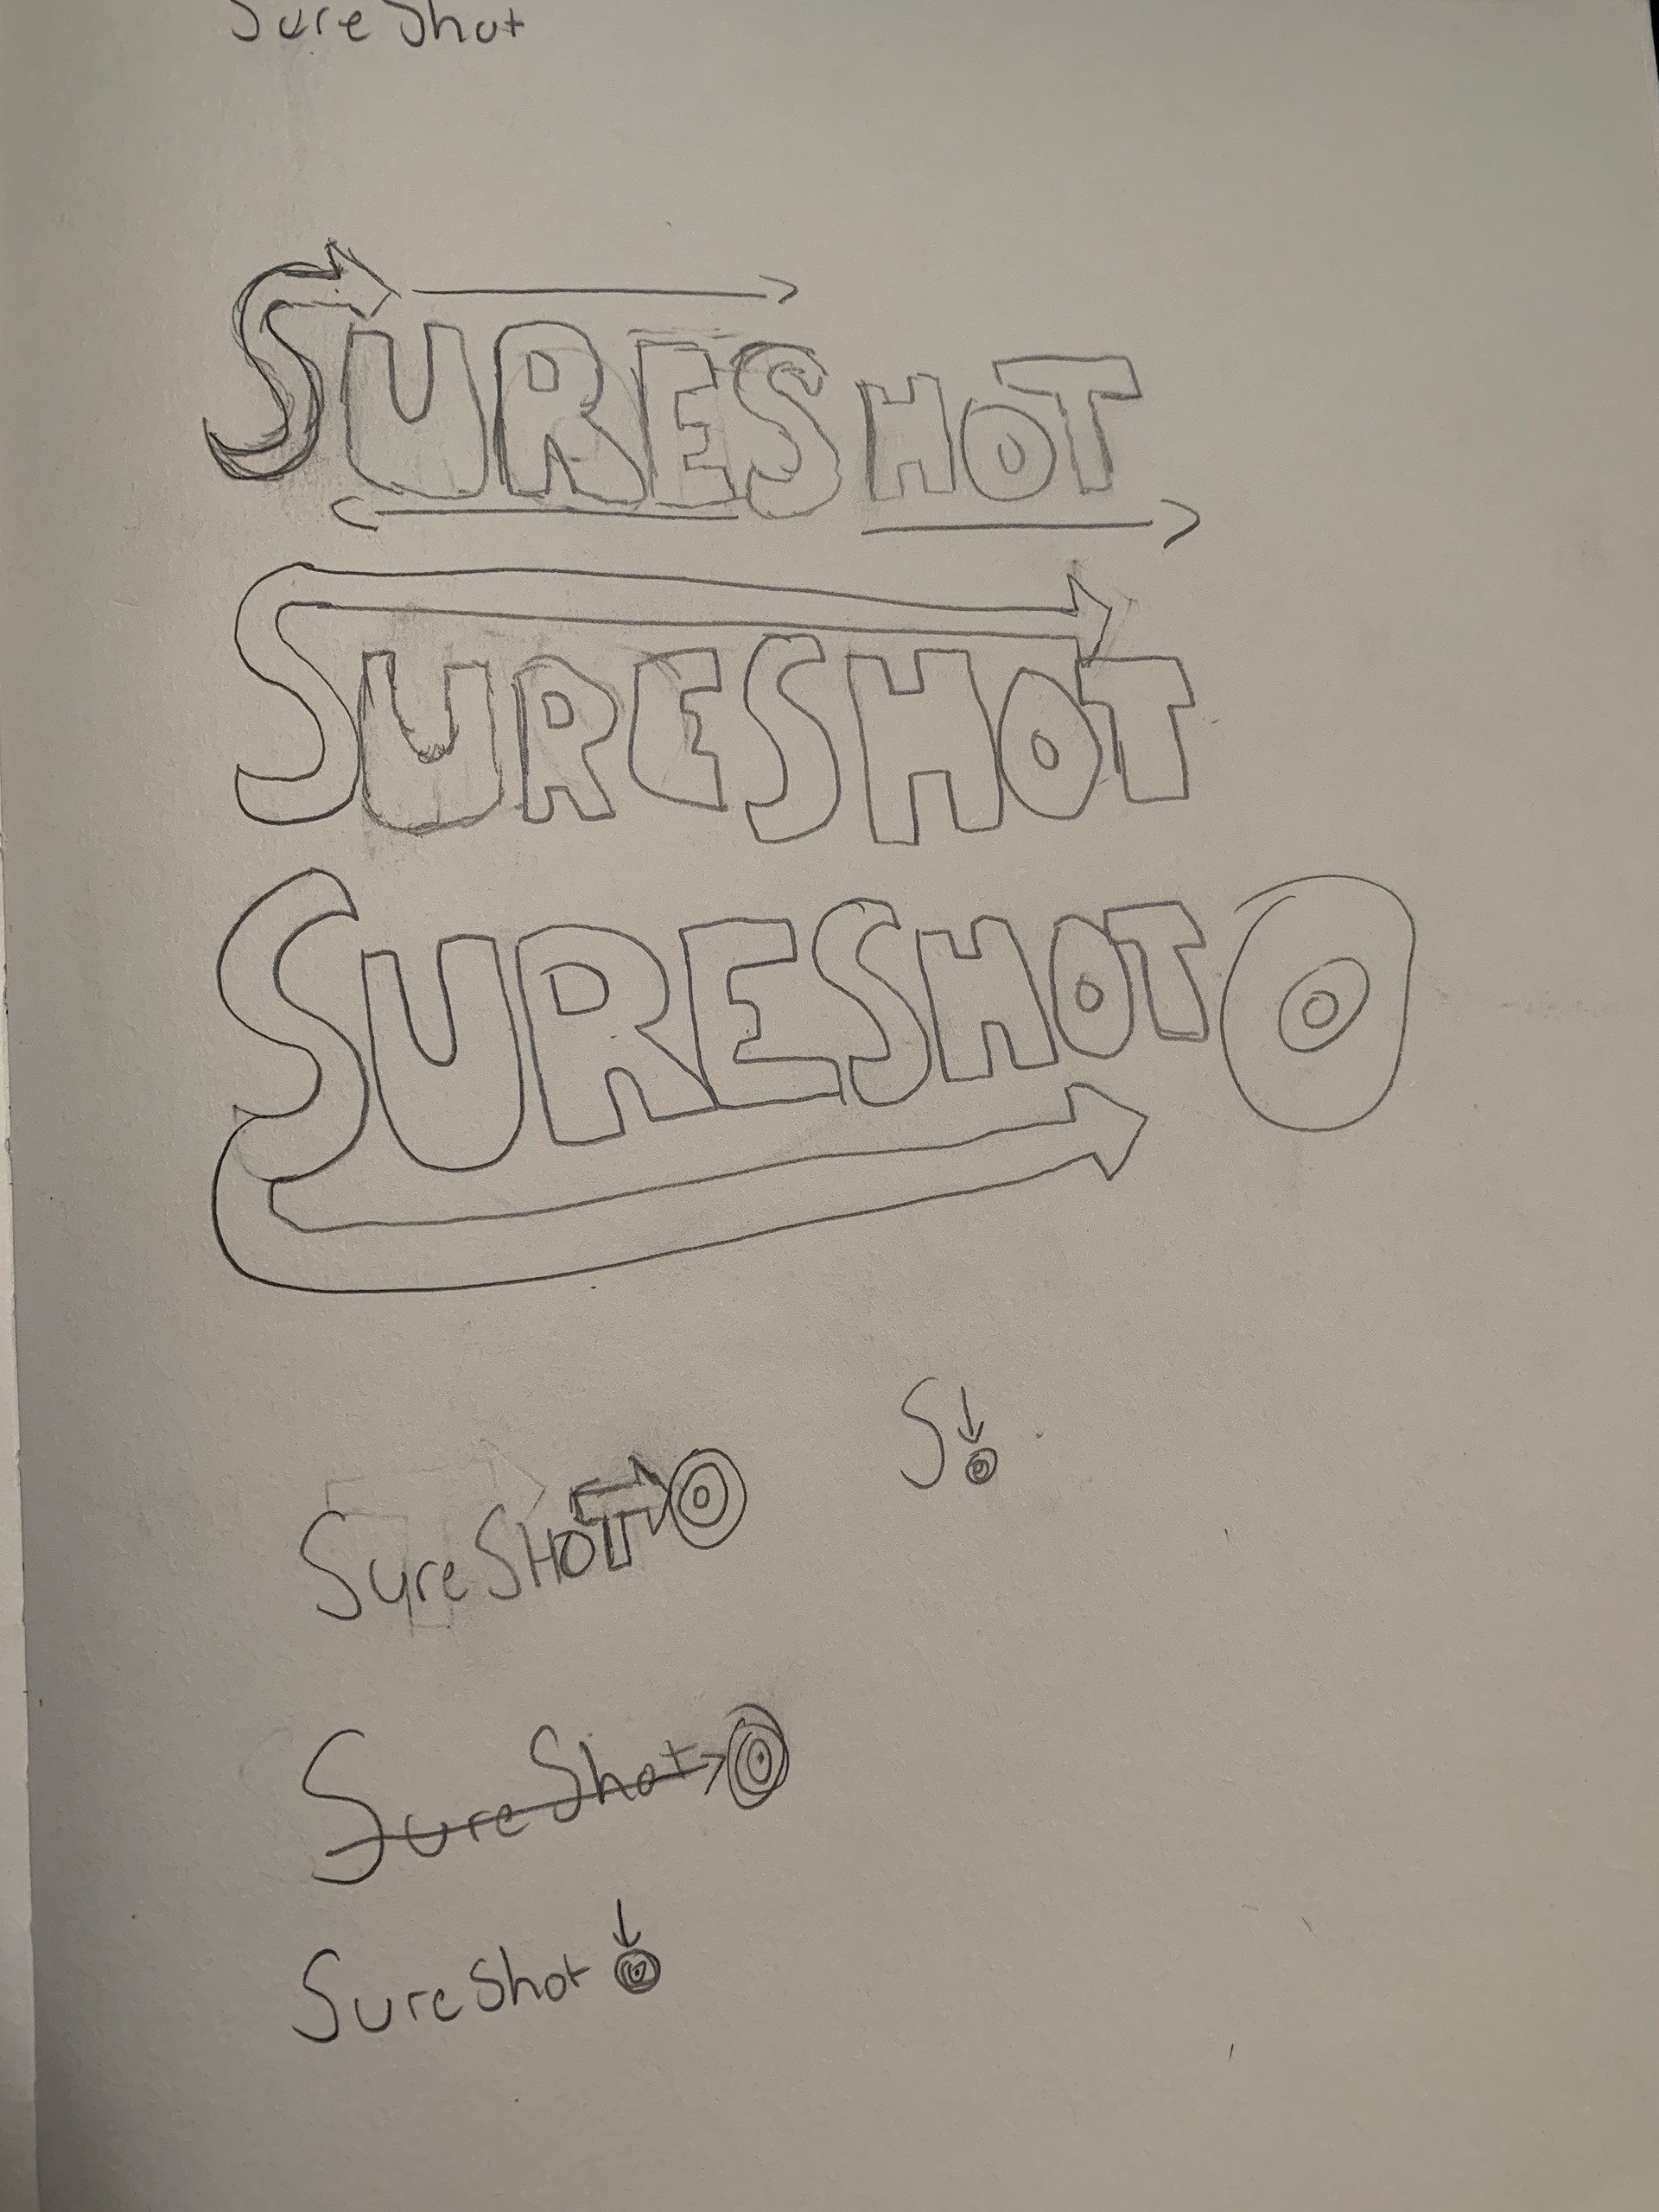 SureShot
SURESHOT
SURESHOT
SURESHOT
S
SureSHOT
SureShot
SureShot